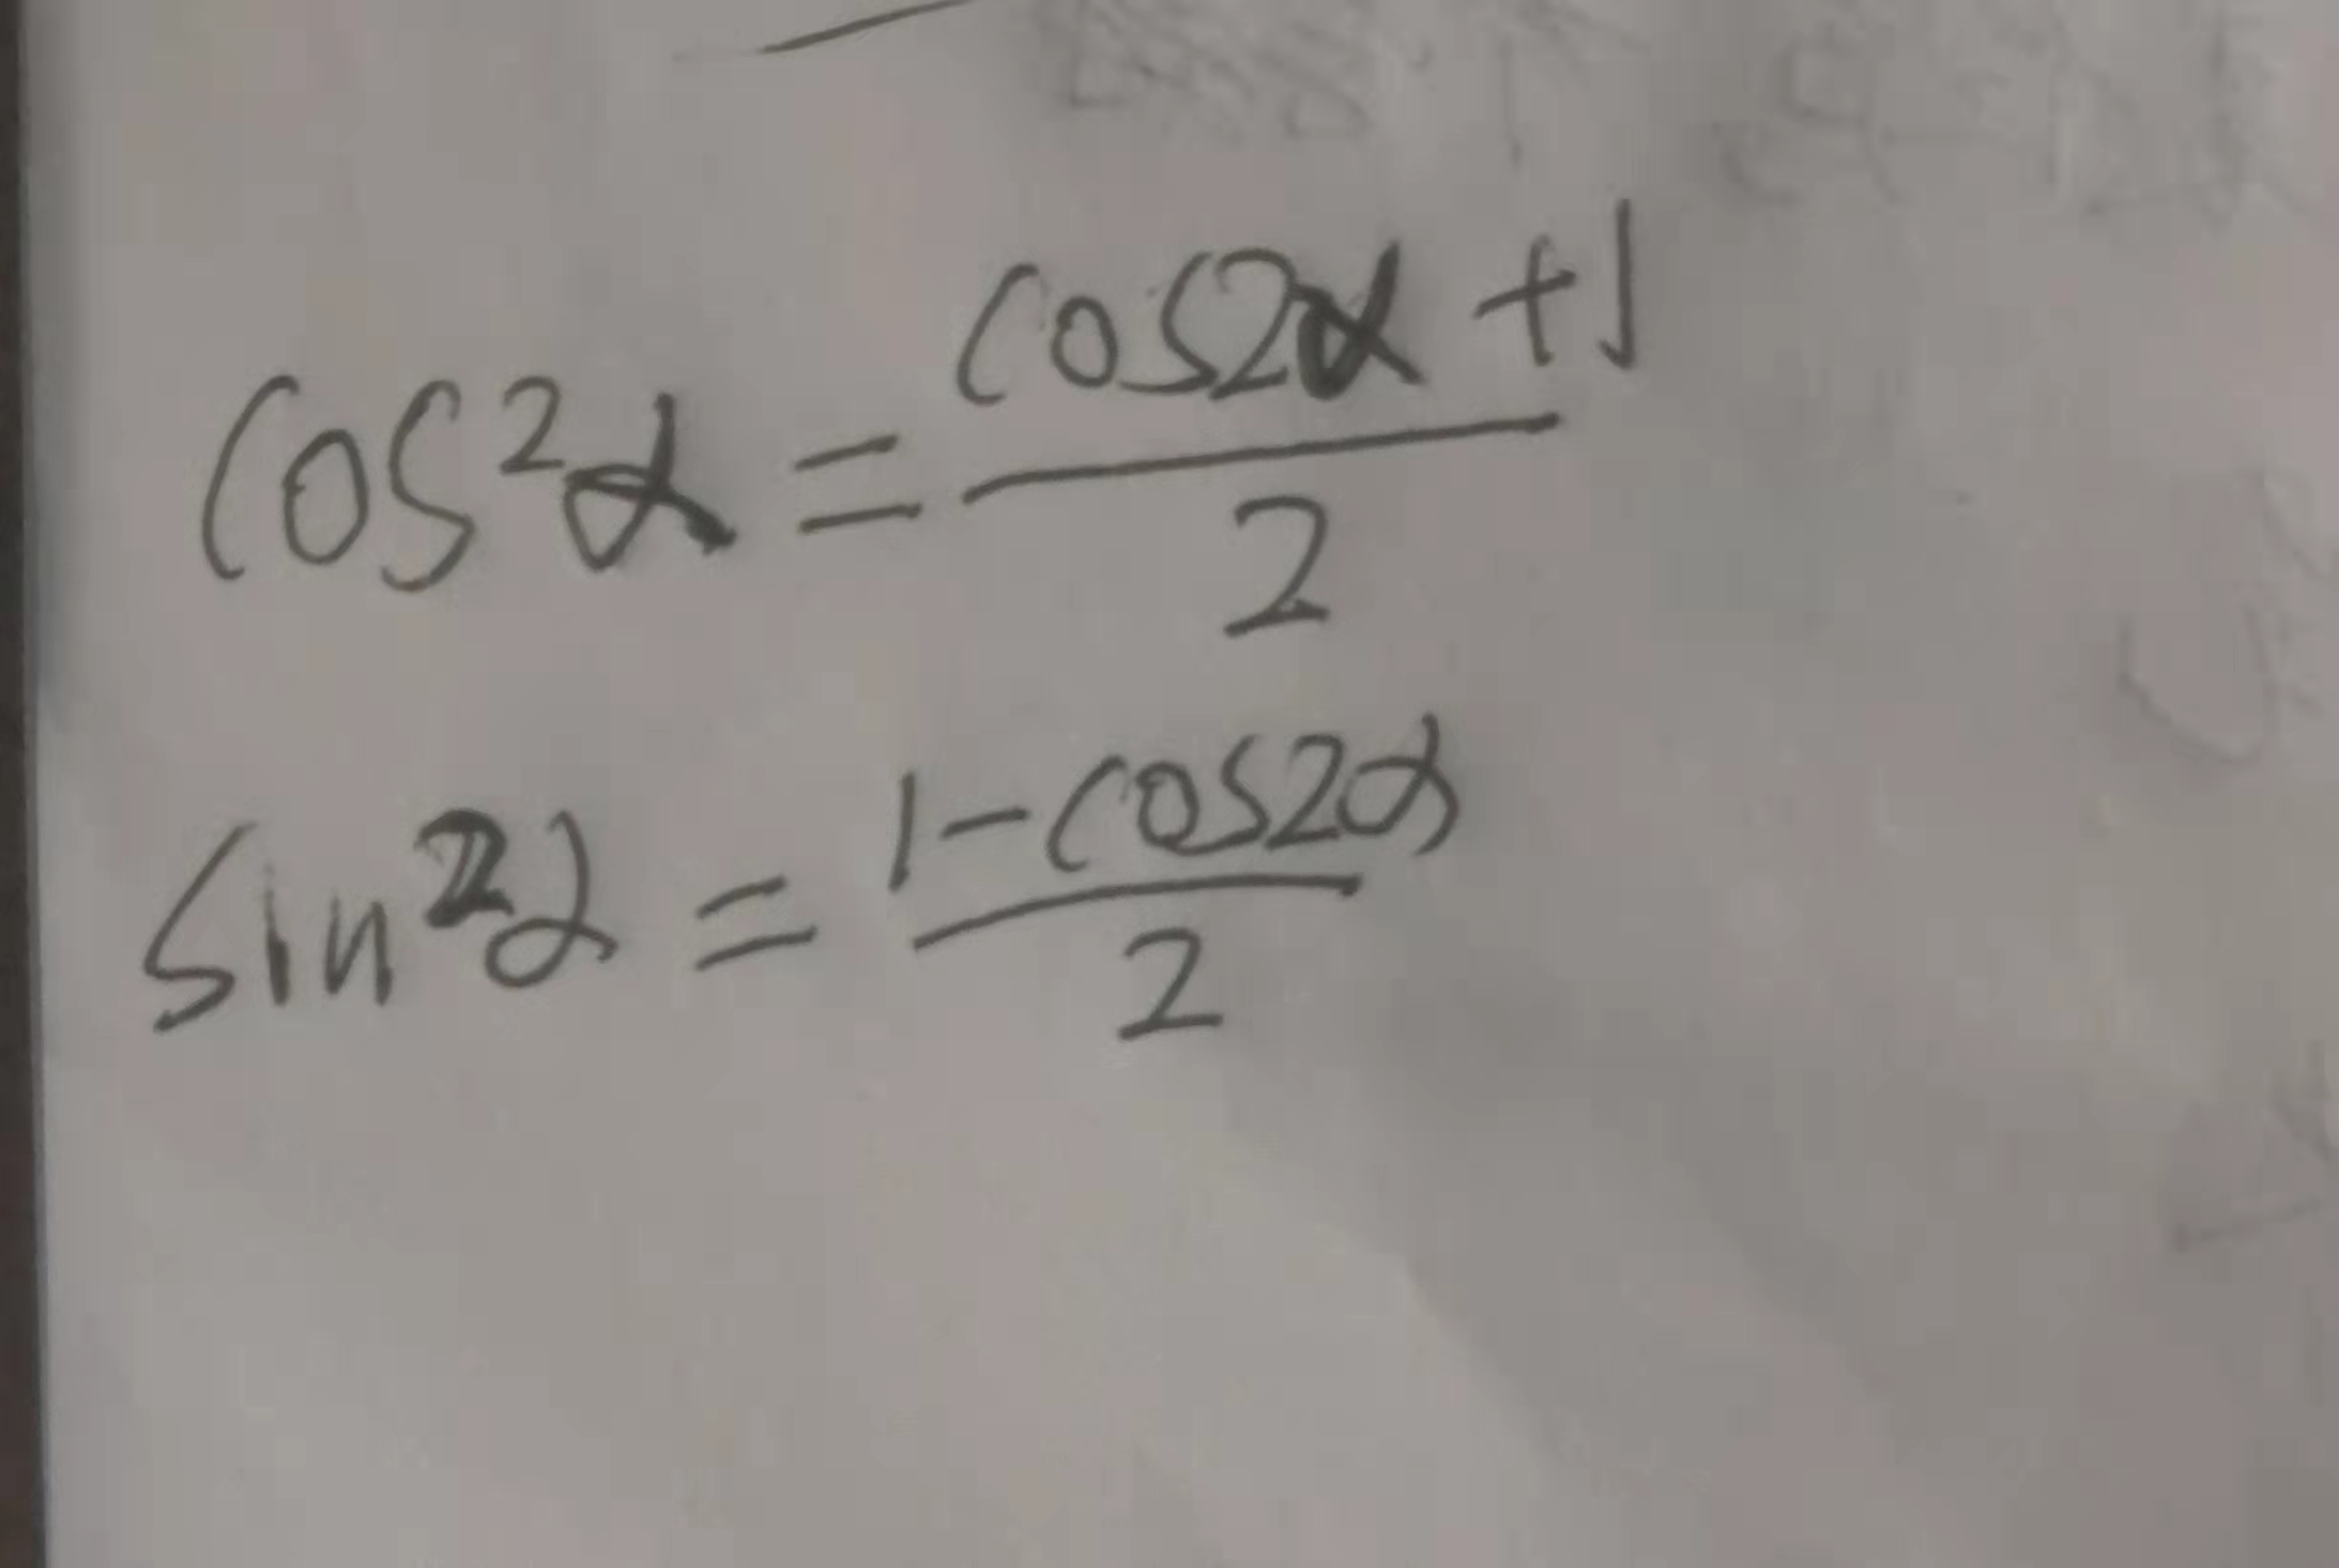 cos²α = (cos2α + 1)/2
sin²α = (1 - cos2α)/2